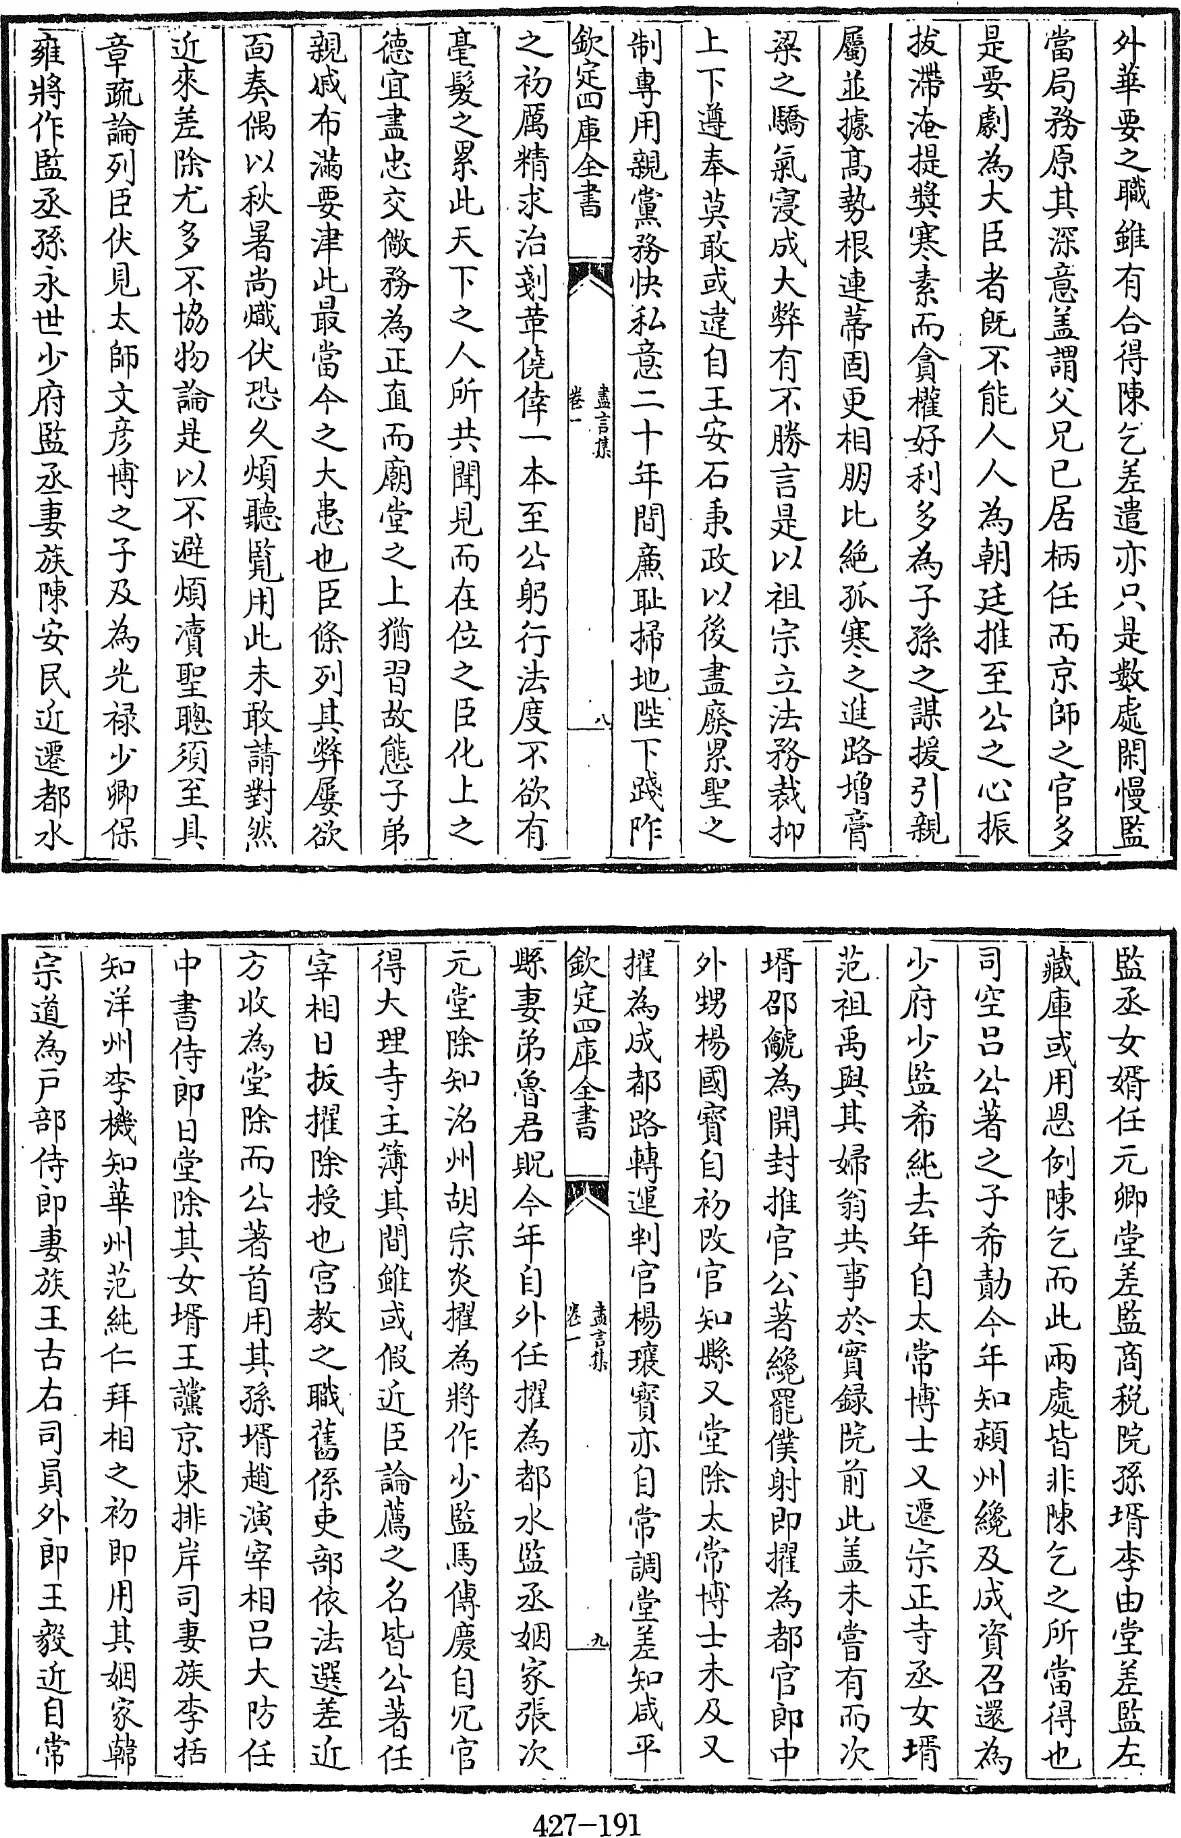 外華要之職雖有合得陳乞差遣亦只是數處閑慢監
當局務原其深意盖謂父兄已居柄任而京師之官多
是要劇為大臣者既不能人人為朝廷推至公之心振
拔滯淹提獎寒素而貪權好利多為子孫之謀援引親
屬並據髙勢根連蒂固更相朋比絶孤寒之進路增膏
粱之驕氣寖成大弊有不勝言是以祖宗立法務裁抑
上下遵奉莫敢或違自王安石秉政以後盡廢累聖之
制專用親黨務快私意二十年間廉耻掃地陛下踐阼
欽定四庫全書
盡言集
卷一
八
之初厲精求治剗革僥倖一本至公躬行法度不欲有
毫髮之累此天下之人所共聞見而在位之臣化上之
德宜盡忠交儆務為正直而廟堂之上猶習故態子弟
親戚布滿要津此最當今之大患也臣條列其弊屢欲
面奏偶以秋暑尚熾伏恐久煩聽覧用此未敢請對然
近來差除尤多不協物論是以不避煩瀆聖聰須至具
章疏論列臣伏見太師文彦博之子及為光禄少卿保
雍將作監丞孫永世少府監丞妻族陳安民近遷都水
監丞女婿任元卿堂差監商税院孫壻李由堂差監左
藏庫或用恩例陳乞而此兩處皆非陳乞之所當得也
司空吕公著之子希勣今年知潁州纔及成資召還為
少府少監希純去年自太常博士又遷宗正寺丞女壻
范祖禹與其婦翁共事於實録院前此盖未嘗有而次
壻邵䚮為開封推官公著纔罷僕射即擢為都官郎中
外甥楊國寳自初改官知縣又堂除太常博士未及又
擢為成都路轉運判官楊瓌寳亦自常調堂差知咸平
欽定四庫全書
盡言集
卷一
九
縣妻弟魯君貺今年自外任擢為都水監丞姻家張次
元堂除知洺州胡宗炎擢為將作少監馬傳慶自冗官
得大理寺主簿其間雖或假近臣論薦之名皆公著任
宰相日拔擢除授也宫教之職舊係吏部依法選差近
方收為堂除而公著首用其孫壻趙演宰相吕大防任
中書侍郎日堂除其女壻王讜京東排岸司妻族李括
知洋州李機知華州范純仁拜相之初即用其姻家韓
宗道為户部侍郎妻族王古右司員外郎王毅近自常
427-191